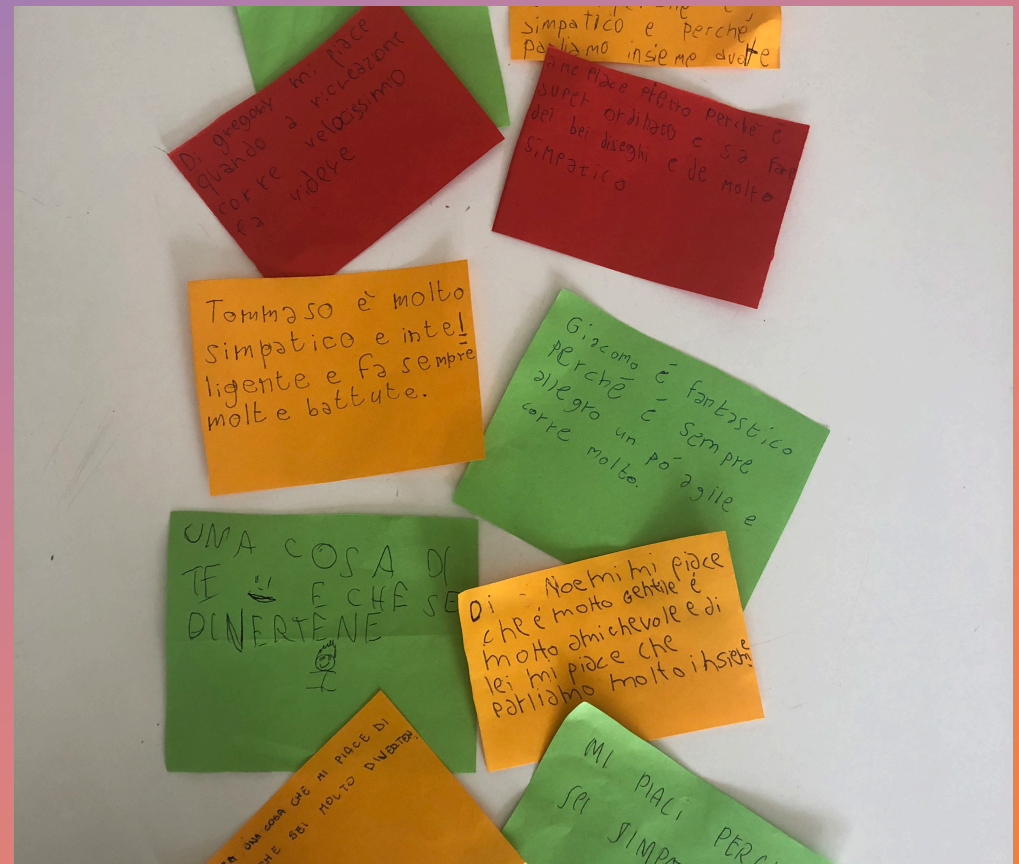 simpatico e perchè
parliamo insieme
Di gregory mi piace
quando a ricreazione
corre velocissimo
fa ridere
a me piace perchè è
super ordinato e sa fare
dei bei disegni e de molto
simpatico
Tommaso è molto
simpatico e intel
ligente e fa sempre
molte battute.
Giacomo é fantastico
Perché é sempre
allegro un pó agile e
corre molto.
UNA COSA DI
TE E CHE SE
DINERTENE
Di Noemi mi piace
che é molto gentile é
molto amichevole e di
lei mi piace che
parliamo molto insieme
UNA COSA CHE MI PIACE DI
CHE SEI MOLTO DIVERTEN
MI PIACI PERC
SEI SIMPA